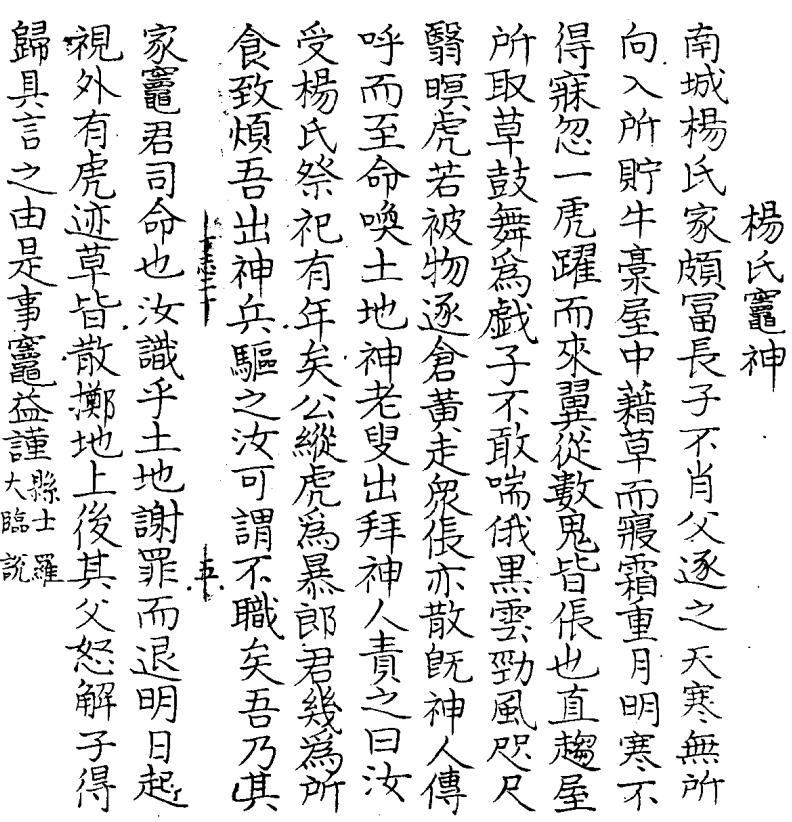 楊氏竈神
南城楊氏家頗冨長子不肖父逐之天寒無所
向入所貯牛藁屋中藉草而寢霜重月明寒不
得寐忽一虎躍而來翼從數鬼皆倀也直趨屋
所取草鼓舞爲戱子不敢喘俄黒雲勁風咫尺
翳暝虎若被物逐倉黄走衆倀亦散旣神人傳
呼而至命喚土地神老叟出拜神人責之曰汝
受楊氏祭祀有年矣公縱虎爲暴郎君幾爲所
食致煩吾出神兵驅之汝可謂不職矣吾乃其
丁志二十
五
家竈君司命也汝識乎土地謝罪而退明日起
視外有虎迹草皆散擲地上後其父怒解子得
歸具言之由是事竈益謹縣士羅
大臨説